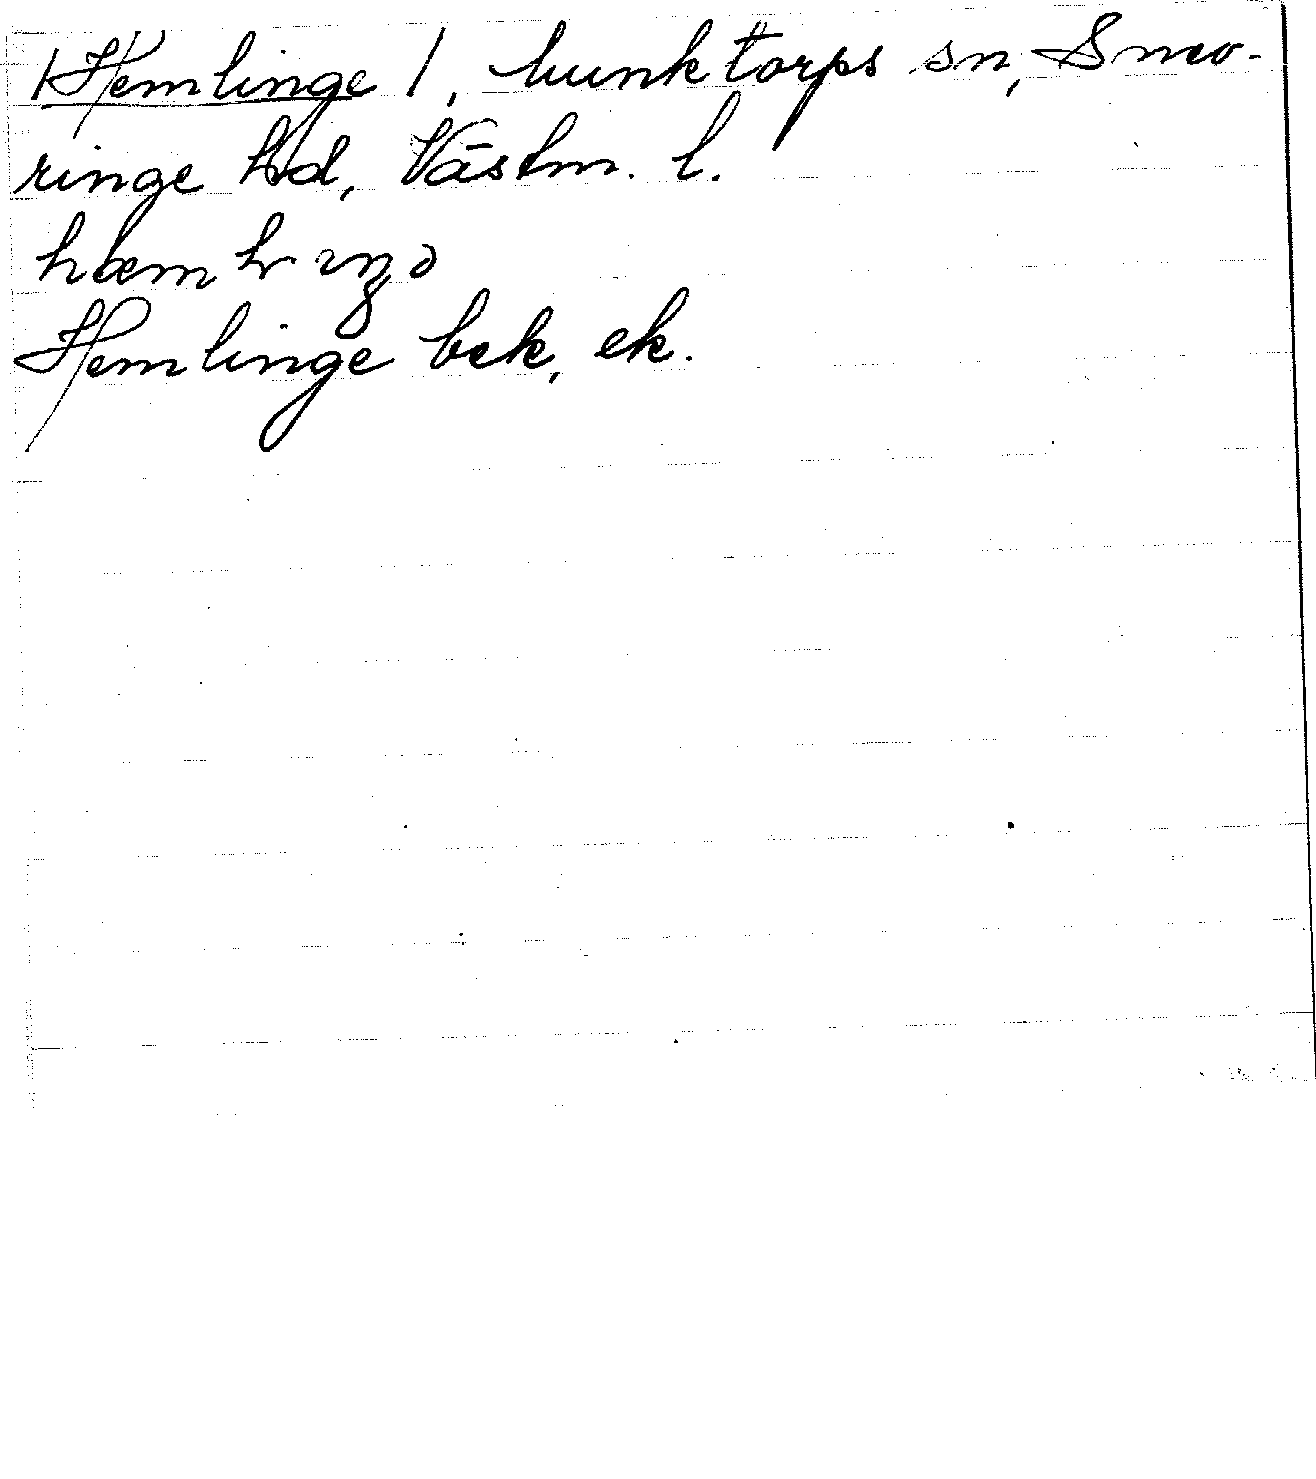 /Hemlinge/, Munktorps sn, Snev-
ringe hd, Västm. l.
Hemlinge bek, ek.